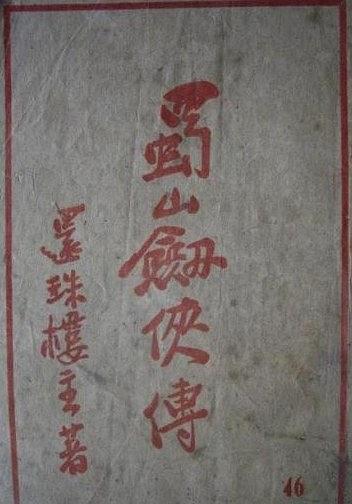 蜀山劔俠傳
還珠樓主著
46